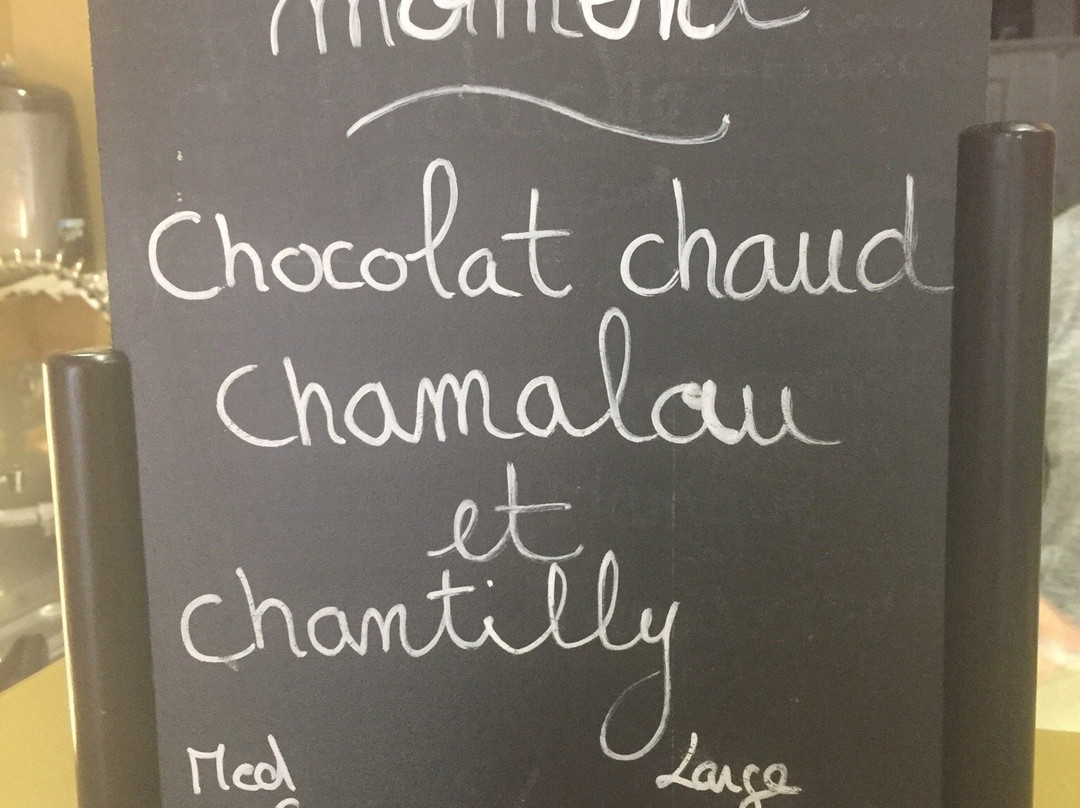 moment
Chocolat chaud
Chamalau
et
chantilly
Med Large